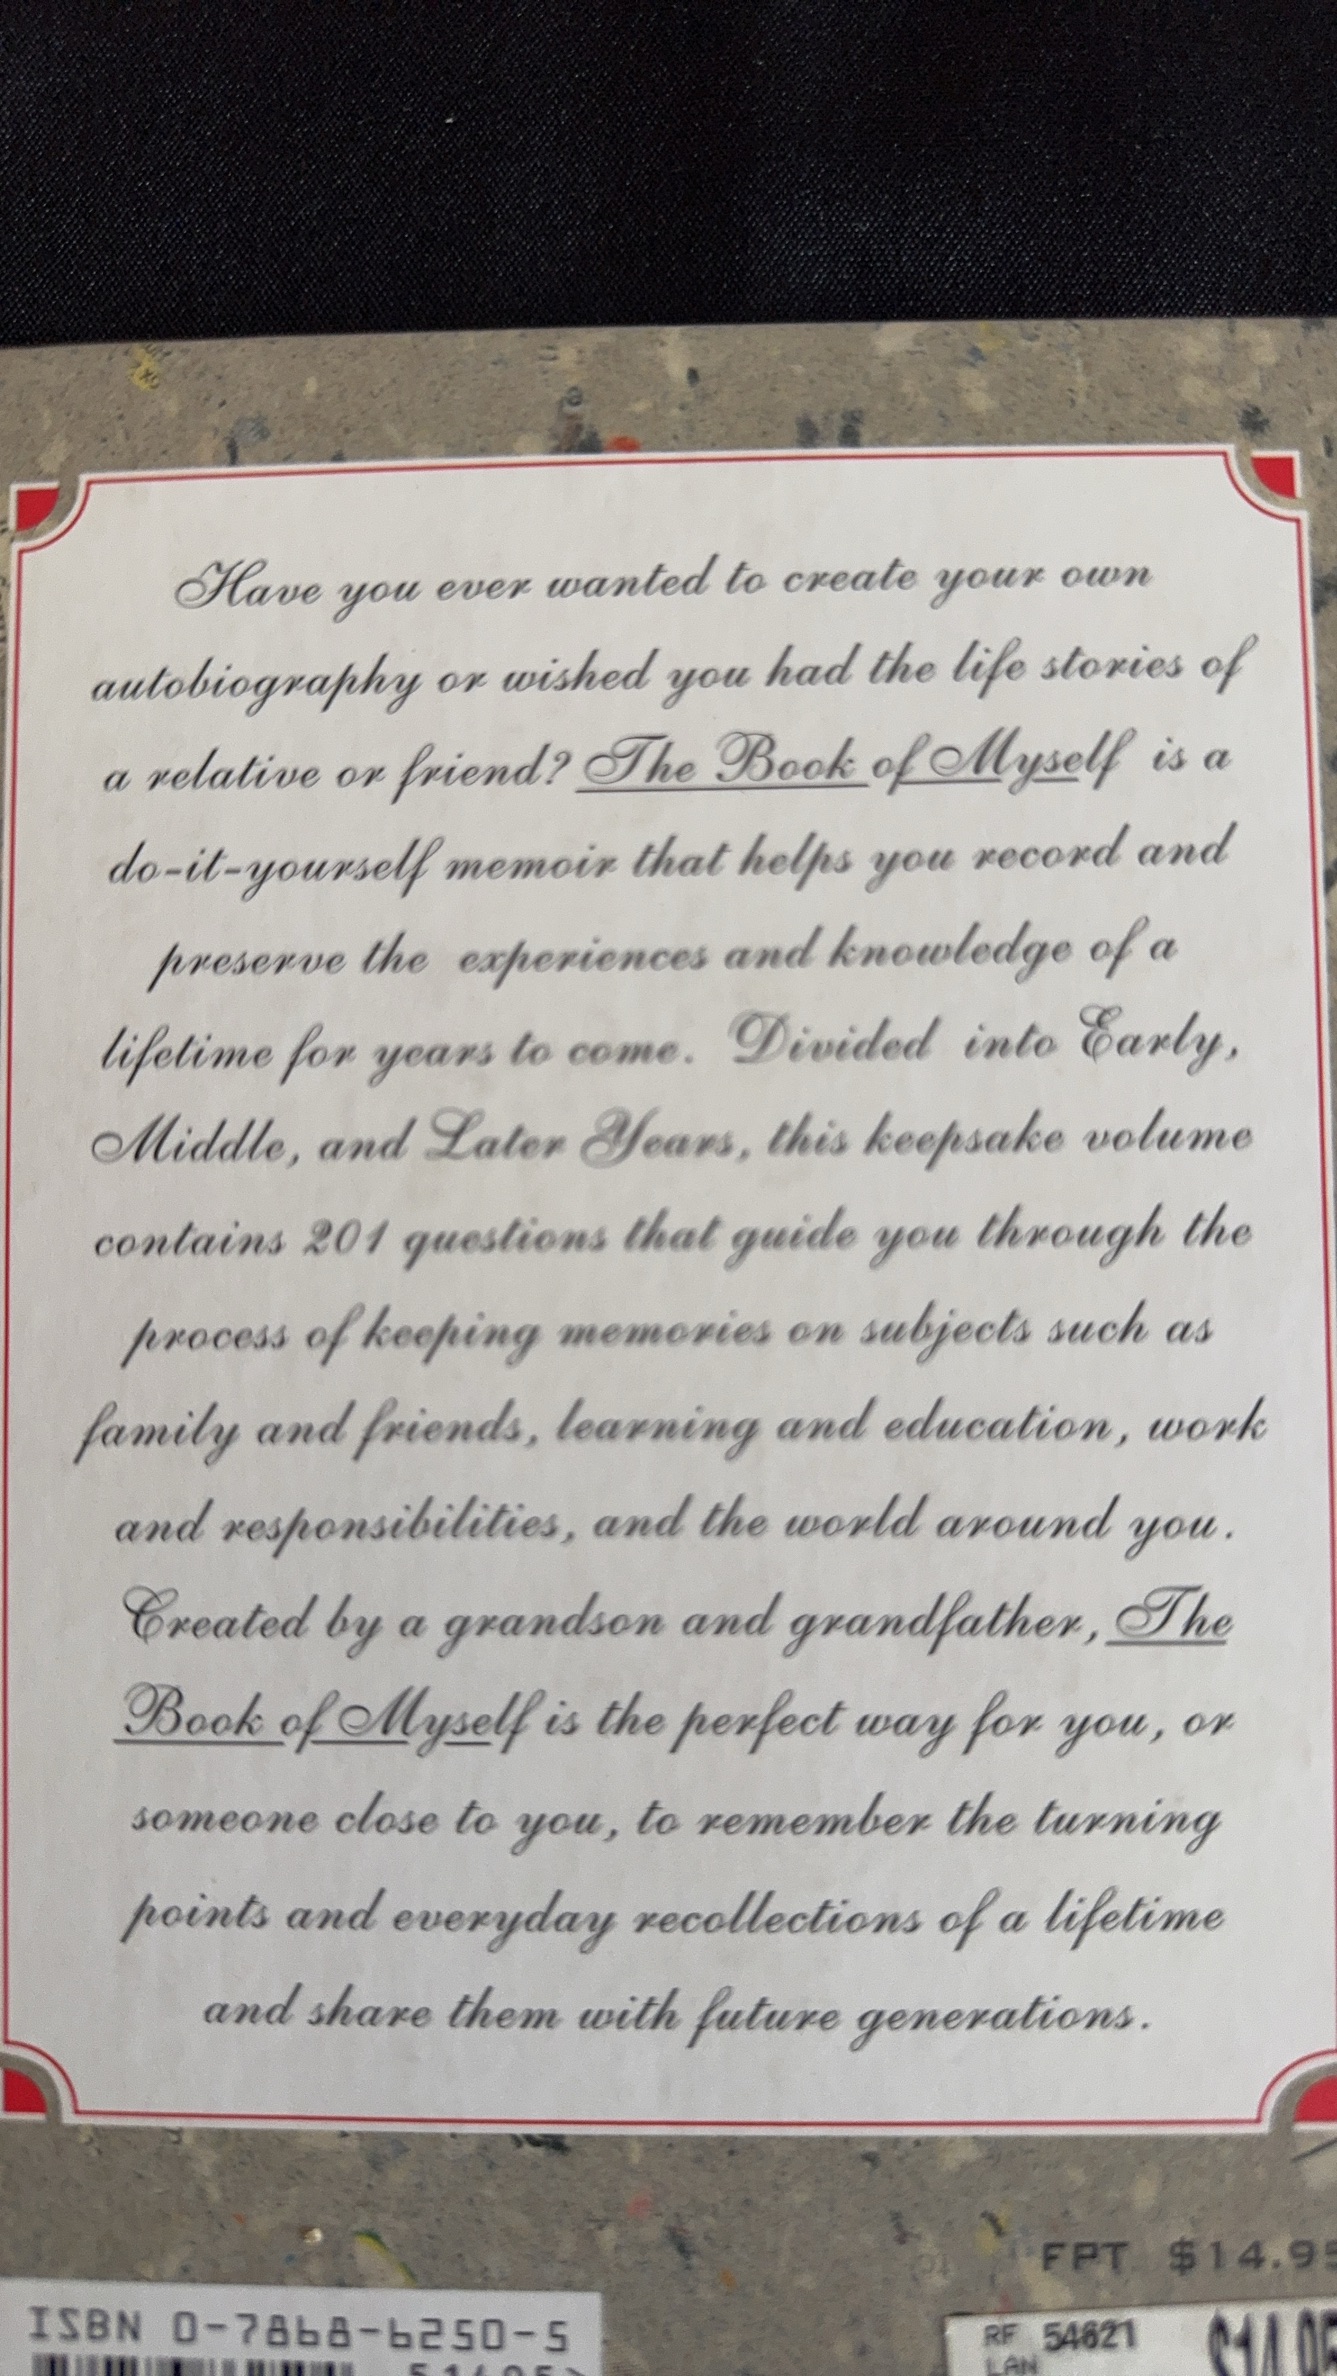 Have you ever wanted to create your own
autobiography or wished you had the life stories of
a relative or friend? The Book of Myself is a
do-it-yourself memoir that helps you record and
preserve the experiences and knowledge of a
lifetime for years to come. Divided into Early,
Middle, and Later Years, this keepsake volume
contains 201 questions that guide you through the
process of keeping memories on subjects such as
family and friends, learning and education, work
and responsibilities, and the world around you.
Created by a grandson and grandfather, The
Book of Myself is the perfect way for you, or
someone close to you, to remember the turning
points and everyday recollections of a lifetime
and share them with future generations.
FPT $14.95
ISBN 0-7868-6250-5
RF 54621
LAN